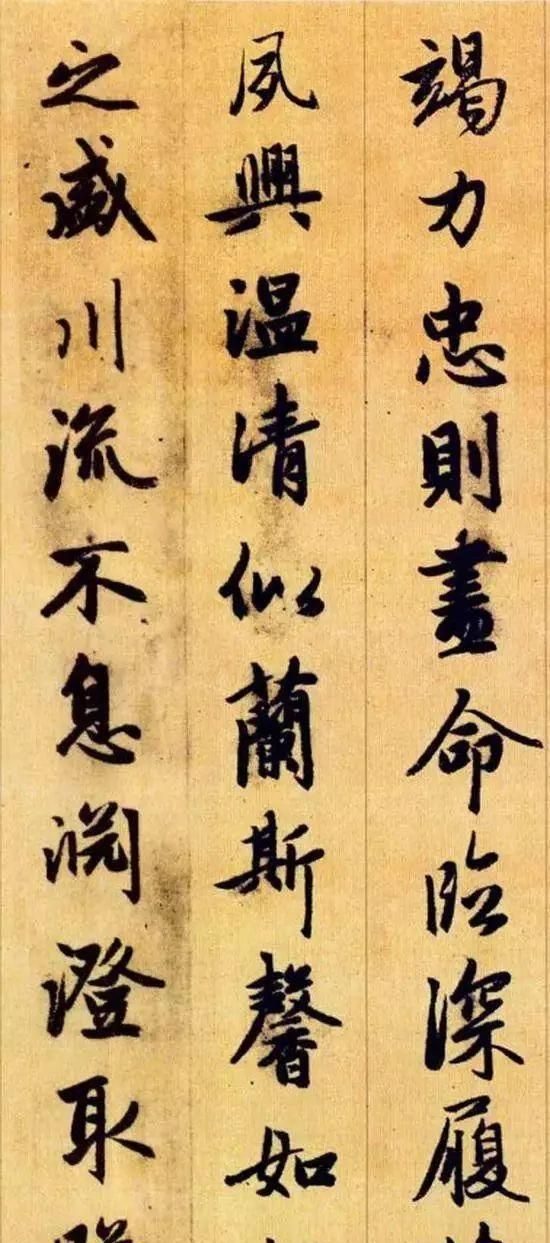 竭力忠則盡命臨深履
夙興温清似蘭斯馨如
之盛川流不息淵澄取